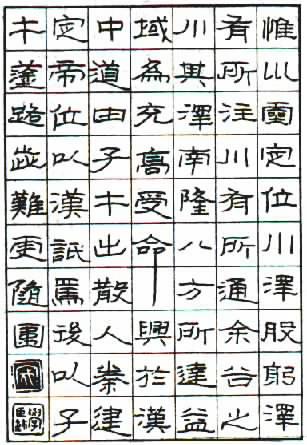 惟巛靈定位川澤股躬澤
有所注川有所通余谷之
川其澤南隆八方所達益
域為充高受命興於漢
中道由子午出散入秦建
定帝位以漢詆焉後以子
午塗路歰難更隨圍